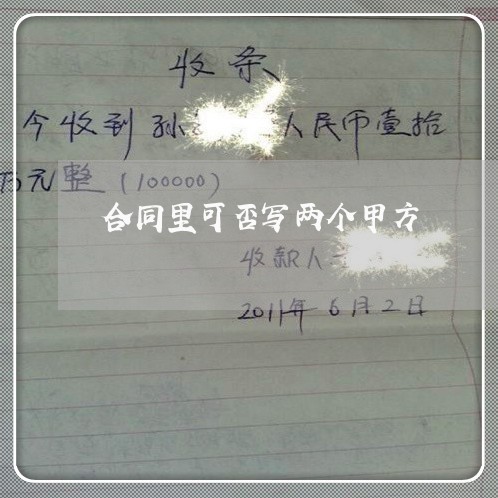 收条
今收到孙 人民币壹拾
万元整(100000)
合同里可否写两个甲方
收款人
2011年6月2日